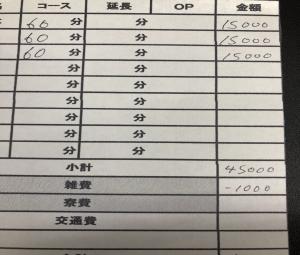 コース 延長 OP 金額
60 分 分 15000
60 分 分 15000
60 分 分 15000
分 分
分 分
分 分
分 分
分 分
分 分
小計 45000
雑費 -1000
寮費
交通費